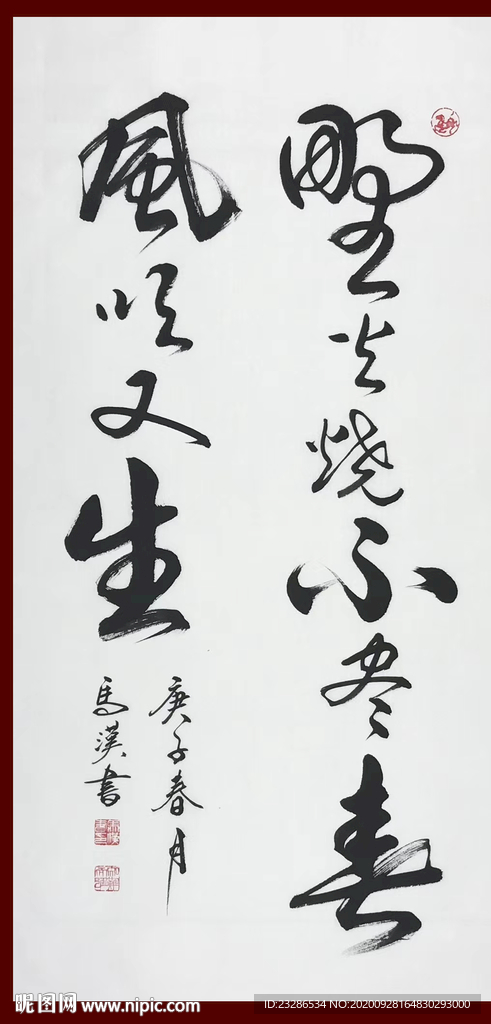 野火烧不尽春
風吹又生
庚子春月
馬漢書
昵图网 www.nipic.com
ID:23286534 NO:20200928164830293000